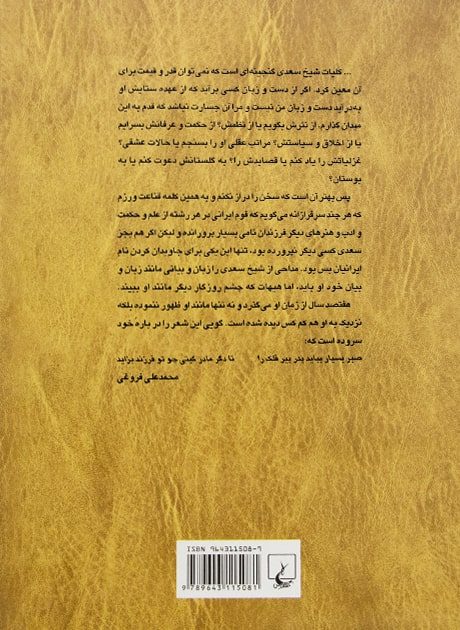 ... کلیات شیخ سعدی گنجینه‌ای است که نمی‌توان قدر و قیمت برای
آن معین کرد. اگر از دست و زبان کسی برآید که از عهده ستایش او
به‌درآید دست و زبان من نیست و مرا آن جسارت نباشد که قدم به این
میدان گذارم. از نثرش بگویم یا از نظمش؟ از حکمت و عرفانش بسرایم
یا از اخلاق و سیاستش؟ مراتب عقلی او را بسنجم یا حالات عشقی؟
غزلیاتش را یاد کنم یا قصایدش را؟ به گلستانش دعوت کنم یا به
بوستان؟
پس بهتر آن است که سخن را دراز نکنم و به همین کلمه قناعت ورزم
که هر چند سرفرازانه می‌گویم که قوم ایرانی در هر رشته از علم و حکمت
و ادب و هنرهای دیگر فرزندان نامی بسیار پرورانده و لیکن اگر هم بجز
سعدی کسی دیگر نپرورده بود، تنها این یکی برای جاویدان کردن نام
ایرانیان بس بود. مداحی از شیخ سعدی را زبان و بیانی مانند زبان و
بیان خود او باید، اما هیهات که چشم روزگار دیگر مانند او ببیند.
هفتصد سال از زمان او می‌گذرد و نه تنها مانند او ظهور ننموده بلکه
نزدیک به او هم کم کس دیده شده است. گویی این شعر را در باره خود
سروده است که:
صبر بسیار بباید پدر پیر فلک را تا دگر مادر گیتی چو تو فرزند بزاید
محمدعلی فروغی
ISBN 964311508-9
9 789643 115081